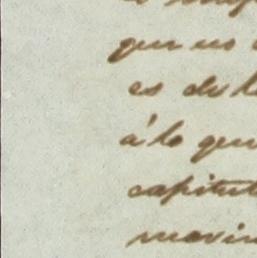 que no
es de l
á lo que
capitul
movim